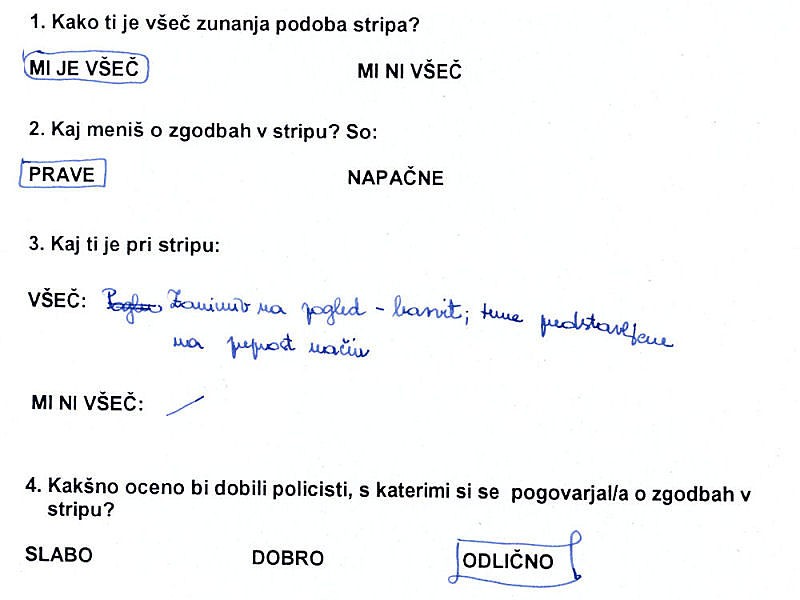 1. Kako ti je všeč zunanja podoba stripa?
MI JE VŠEČ MI NI VŠEČ
2. Kaj meniš o zgodbah v stripu? So:
PRAVE NAPAČNE
3. Kaj ti je pri stripu:
VŠEČ: Zanimiv na pogled - barvit; teme predstavljene
na preprost način
MI NI VŠEČ: /
4. Kakšno oceno bi dobili policisti, s katerimi si se pogovarjal/a o zgodbah v
stripu?
SLABO DOBRO ODLIČNO